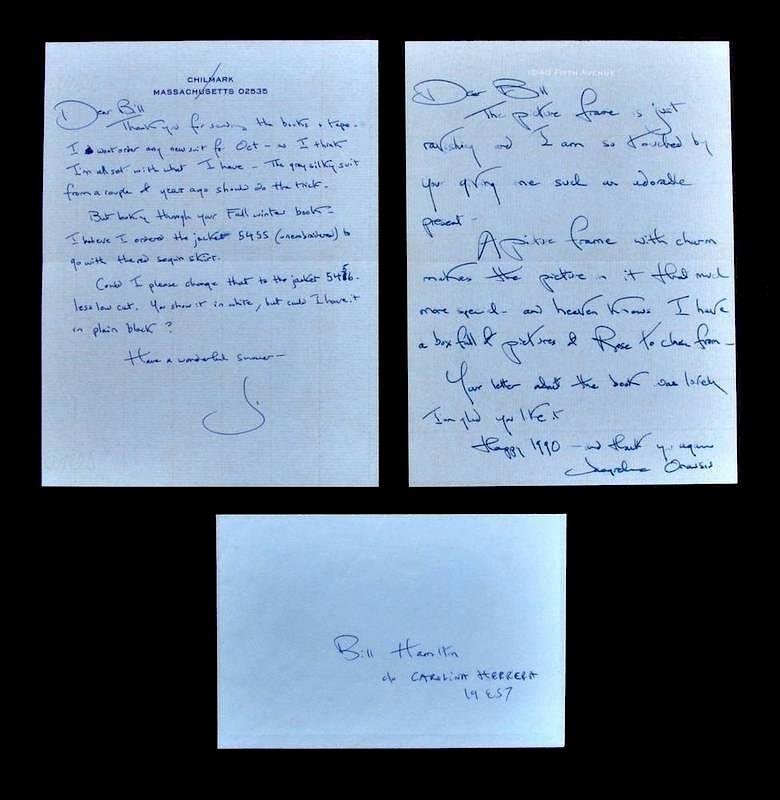 CHILMARK
MASSACHUSETTS 02535
Dear Bill
Thank you for sending the books + tape.
I won't order any new suit for Oct - as I think
I'm all set with what I have - The gray silky suit
from a couple of year ago should do the trick.
But looking through your Fall winter book -
I believe I ordered the jacket 5455 (unembroidered) to
go with the red sequin skirt.
Could I please change that to the jacket
less low cut. You show it in white, but could I have it
in plain black?
Have a wonderful summer -
J
1040 FIFTH AVENUE
Dear Bill
The picture frame is just
ravishing and I am so touched by
your giving me such an adorable
present -
A picture frame with charm
makes the picture in it that much
more special - and heaven knows I have
a box full of pictures of Rose to choose from -
Your letter about the book was lovely
I'm glad you like it
Happy 1990 - and thank you again
Jacqueline Onassis
Bill Hamilton
c/o CAROLINA HERRERA
19 E57